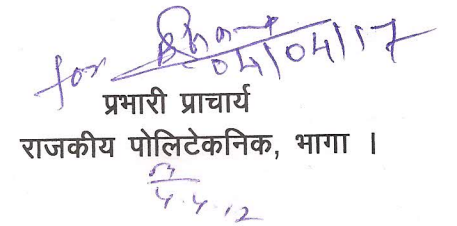 for
04/04/17
प्रभारी प्राचार्य
राजकीय पोलिटेकनिक, भागा ।
4.4.12